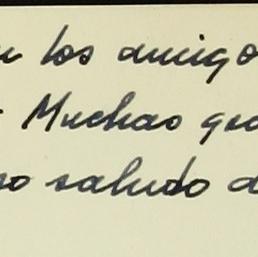 los amigo
Muchas gra
so saludo d